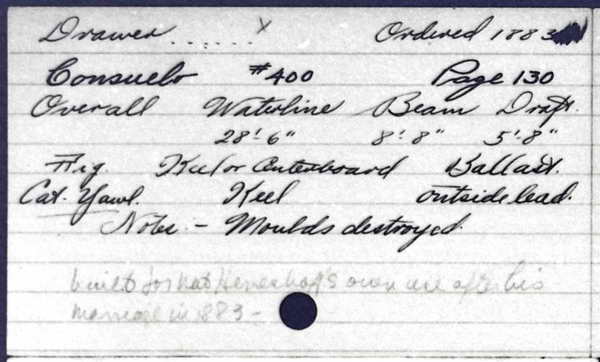 Drawer ...... x Ordered 1883
Consuelo #400 Page 130
Overall Waterline Beam Draft.
28'-6" 8'-8" 5'-8"
Rig Keel or Centerboard Ballast.
Cat. Yawl. Keel outside lead.
Note - Moulds destroyed.
built for Nat Herreshoff's own use after his
marriage in 1883 -